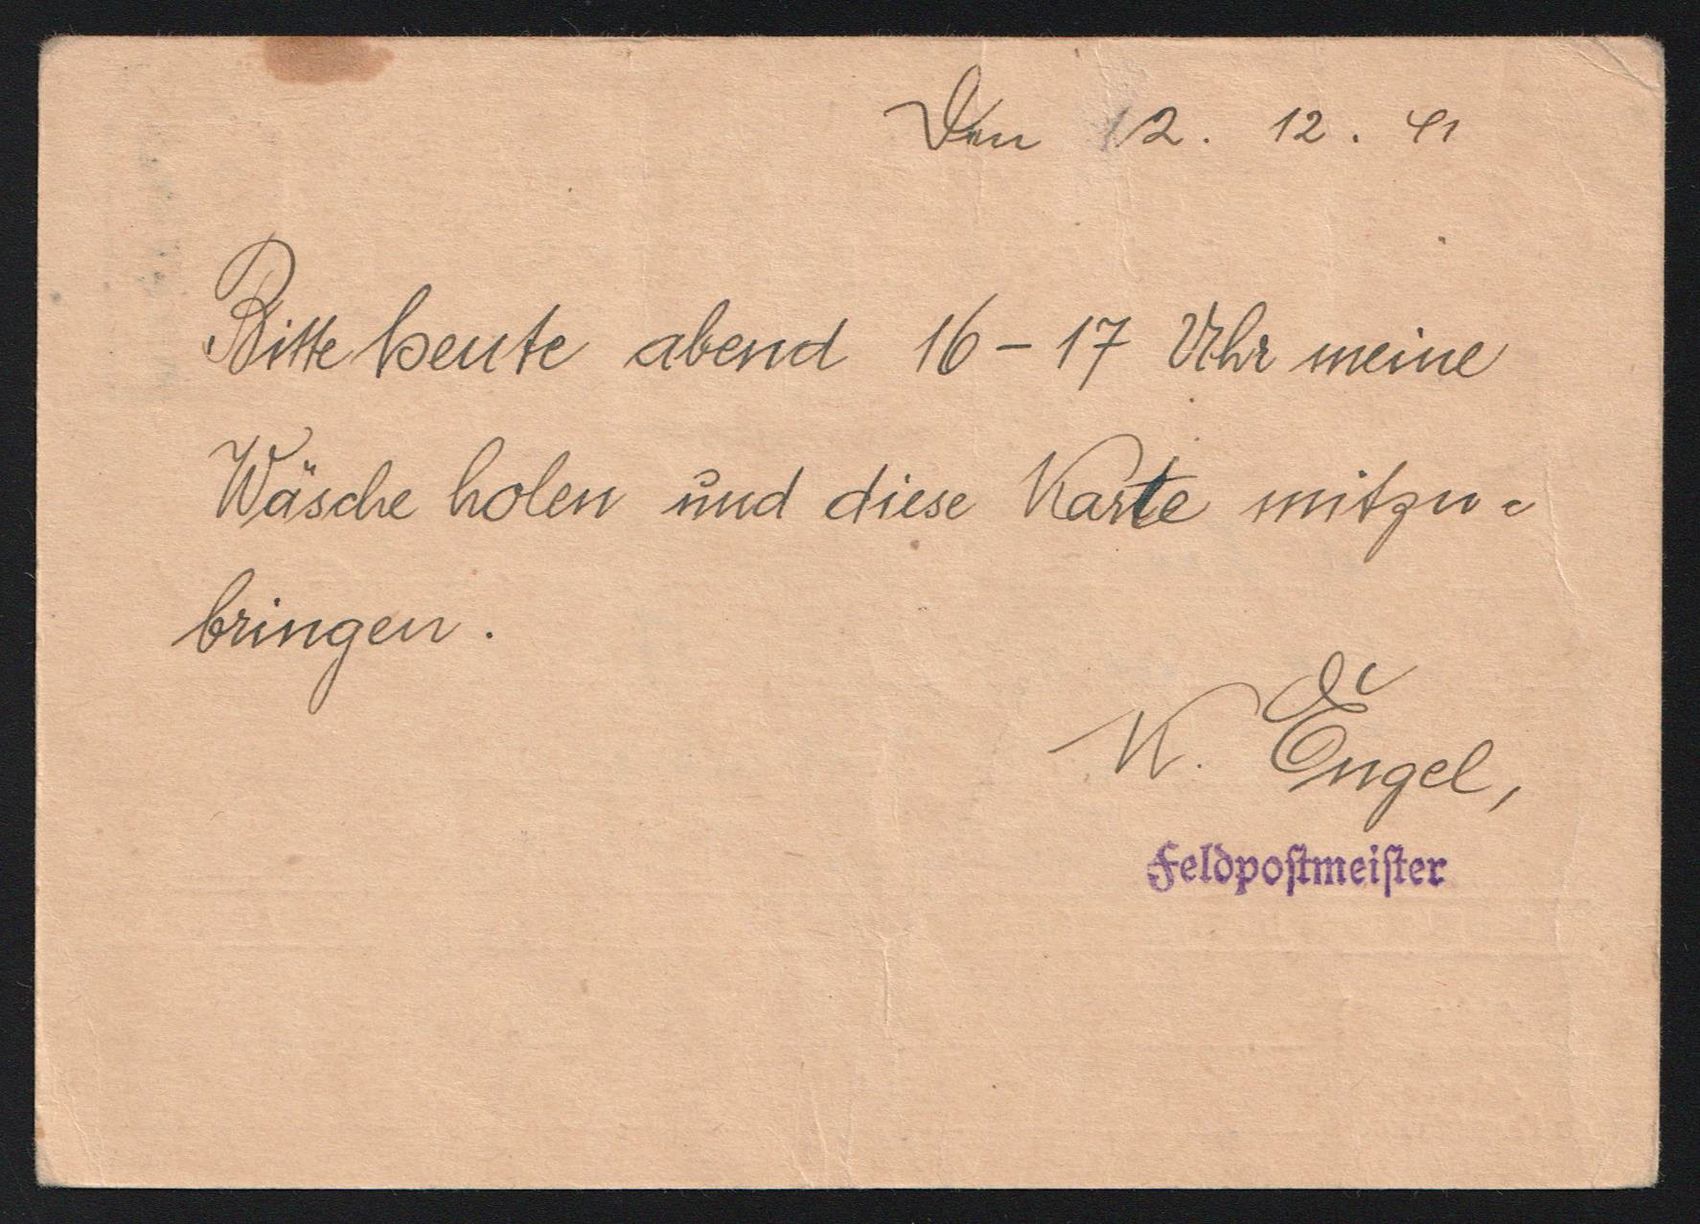 Den 12. 12. 41
Bitte heute abend 16 – 17 Uhr meine
Wäsche holen und diese Karte mitzu-
bringen.
K. Engel,
Feldpostmeister